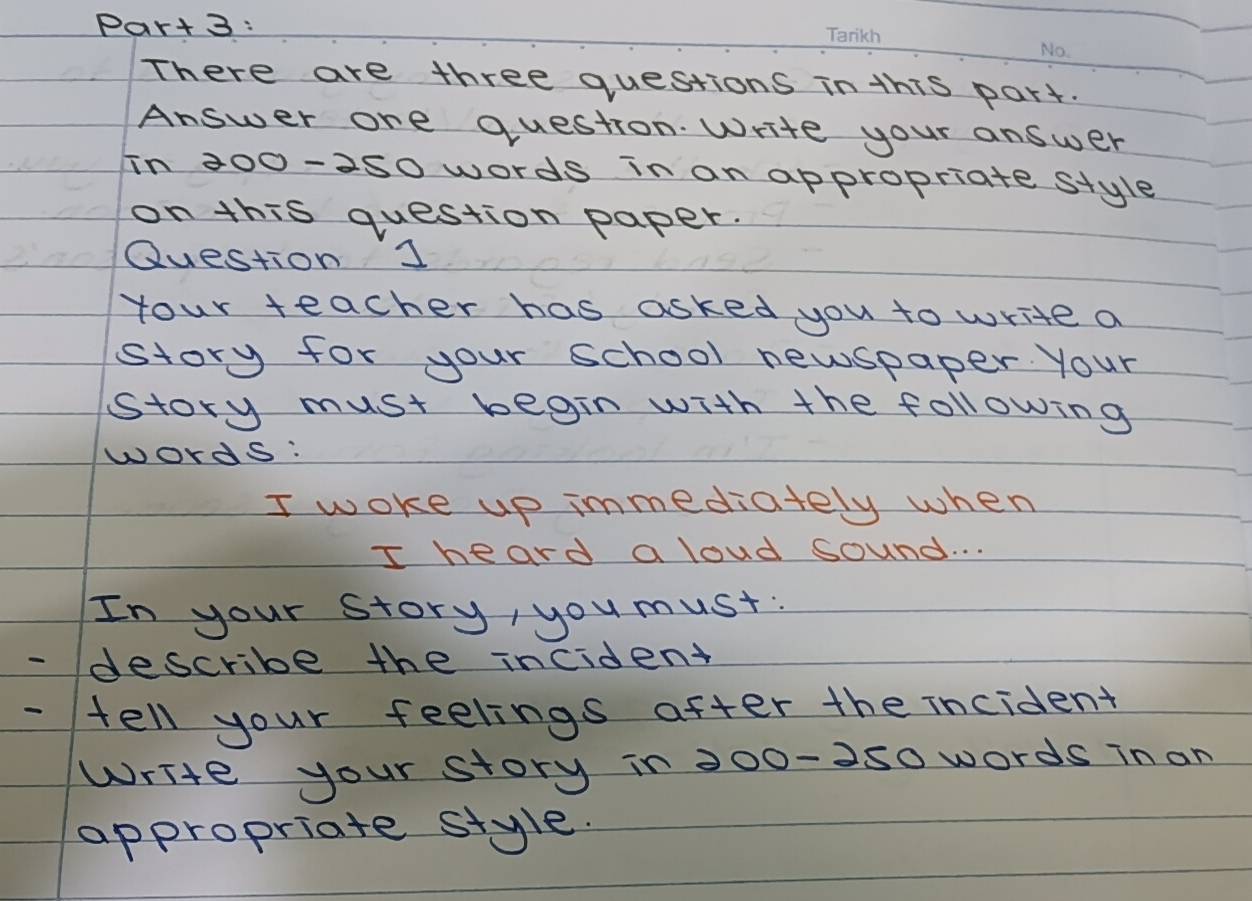 Part 3:
Tarikh
No.
There are three questions in this part.
Answer one question. Write your answer
in 200-250 words in an appropriate style
on this question paper.
Question 1
Your teacher has asked you to write a
story for your school newspaper. Your
story must begin with the following
words:
I woke up immediately when
I heard a loud sound...
In your story, you must:
- describe the incident
- tell your feelings after the incident
Write your story in 200-250 words in an
appropriate style.